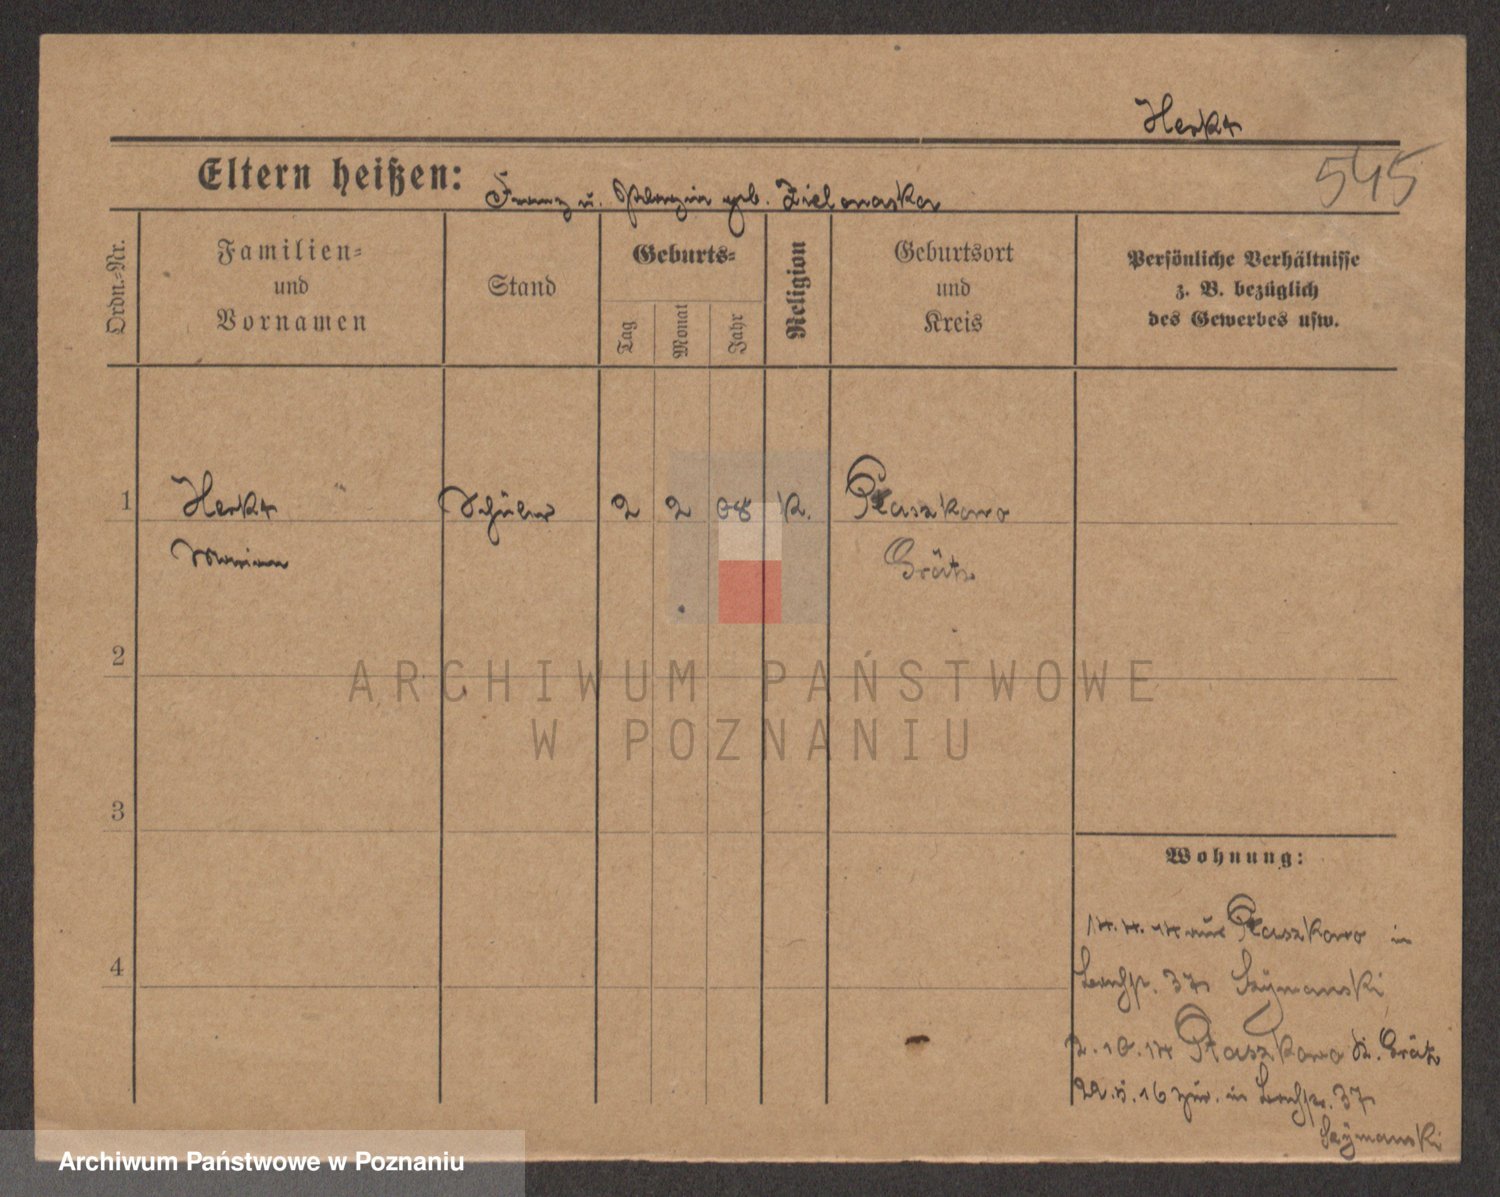 Herkt
545
Eltern heißen: Franz u. geb. Zielonaska
Ordn.-Nr.
Familien-
und
Vornamen
Stand
Geburts-
Tag
Monat
Jahr
Religion
Geburtsort
und
Kreis
Persönliche Verhältnisse
z. B. bezüglich
des Gewerbes usw.
1 Herkt Schüler 2 2 08 k. Ptaszkowo
Marian Grätz
2
3
4
Wohnung:
14.4.14 aus Ptaszkowo in
37 Szymanski
2.10.14 Ptaszkowo Kr. Grätz
16 zur. in 37
Szymanski
ARCHIWUM PAŃSTWOWE
W POZNANIU
Archiwum Państwowe w Poznaniu